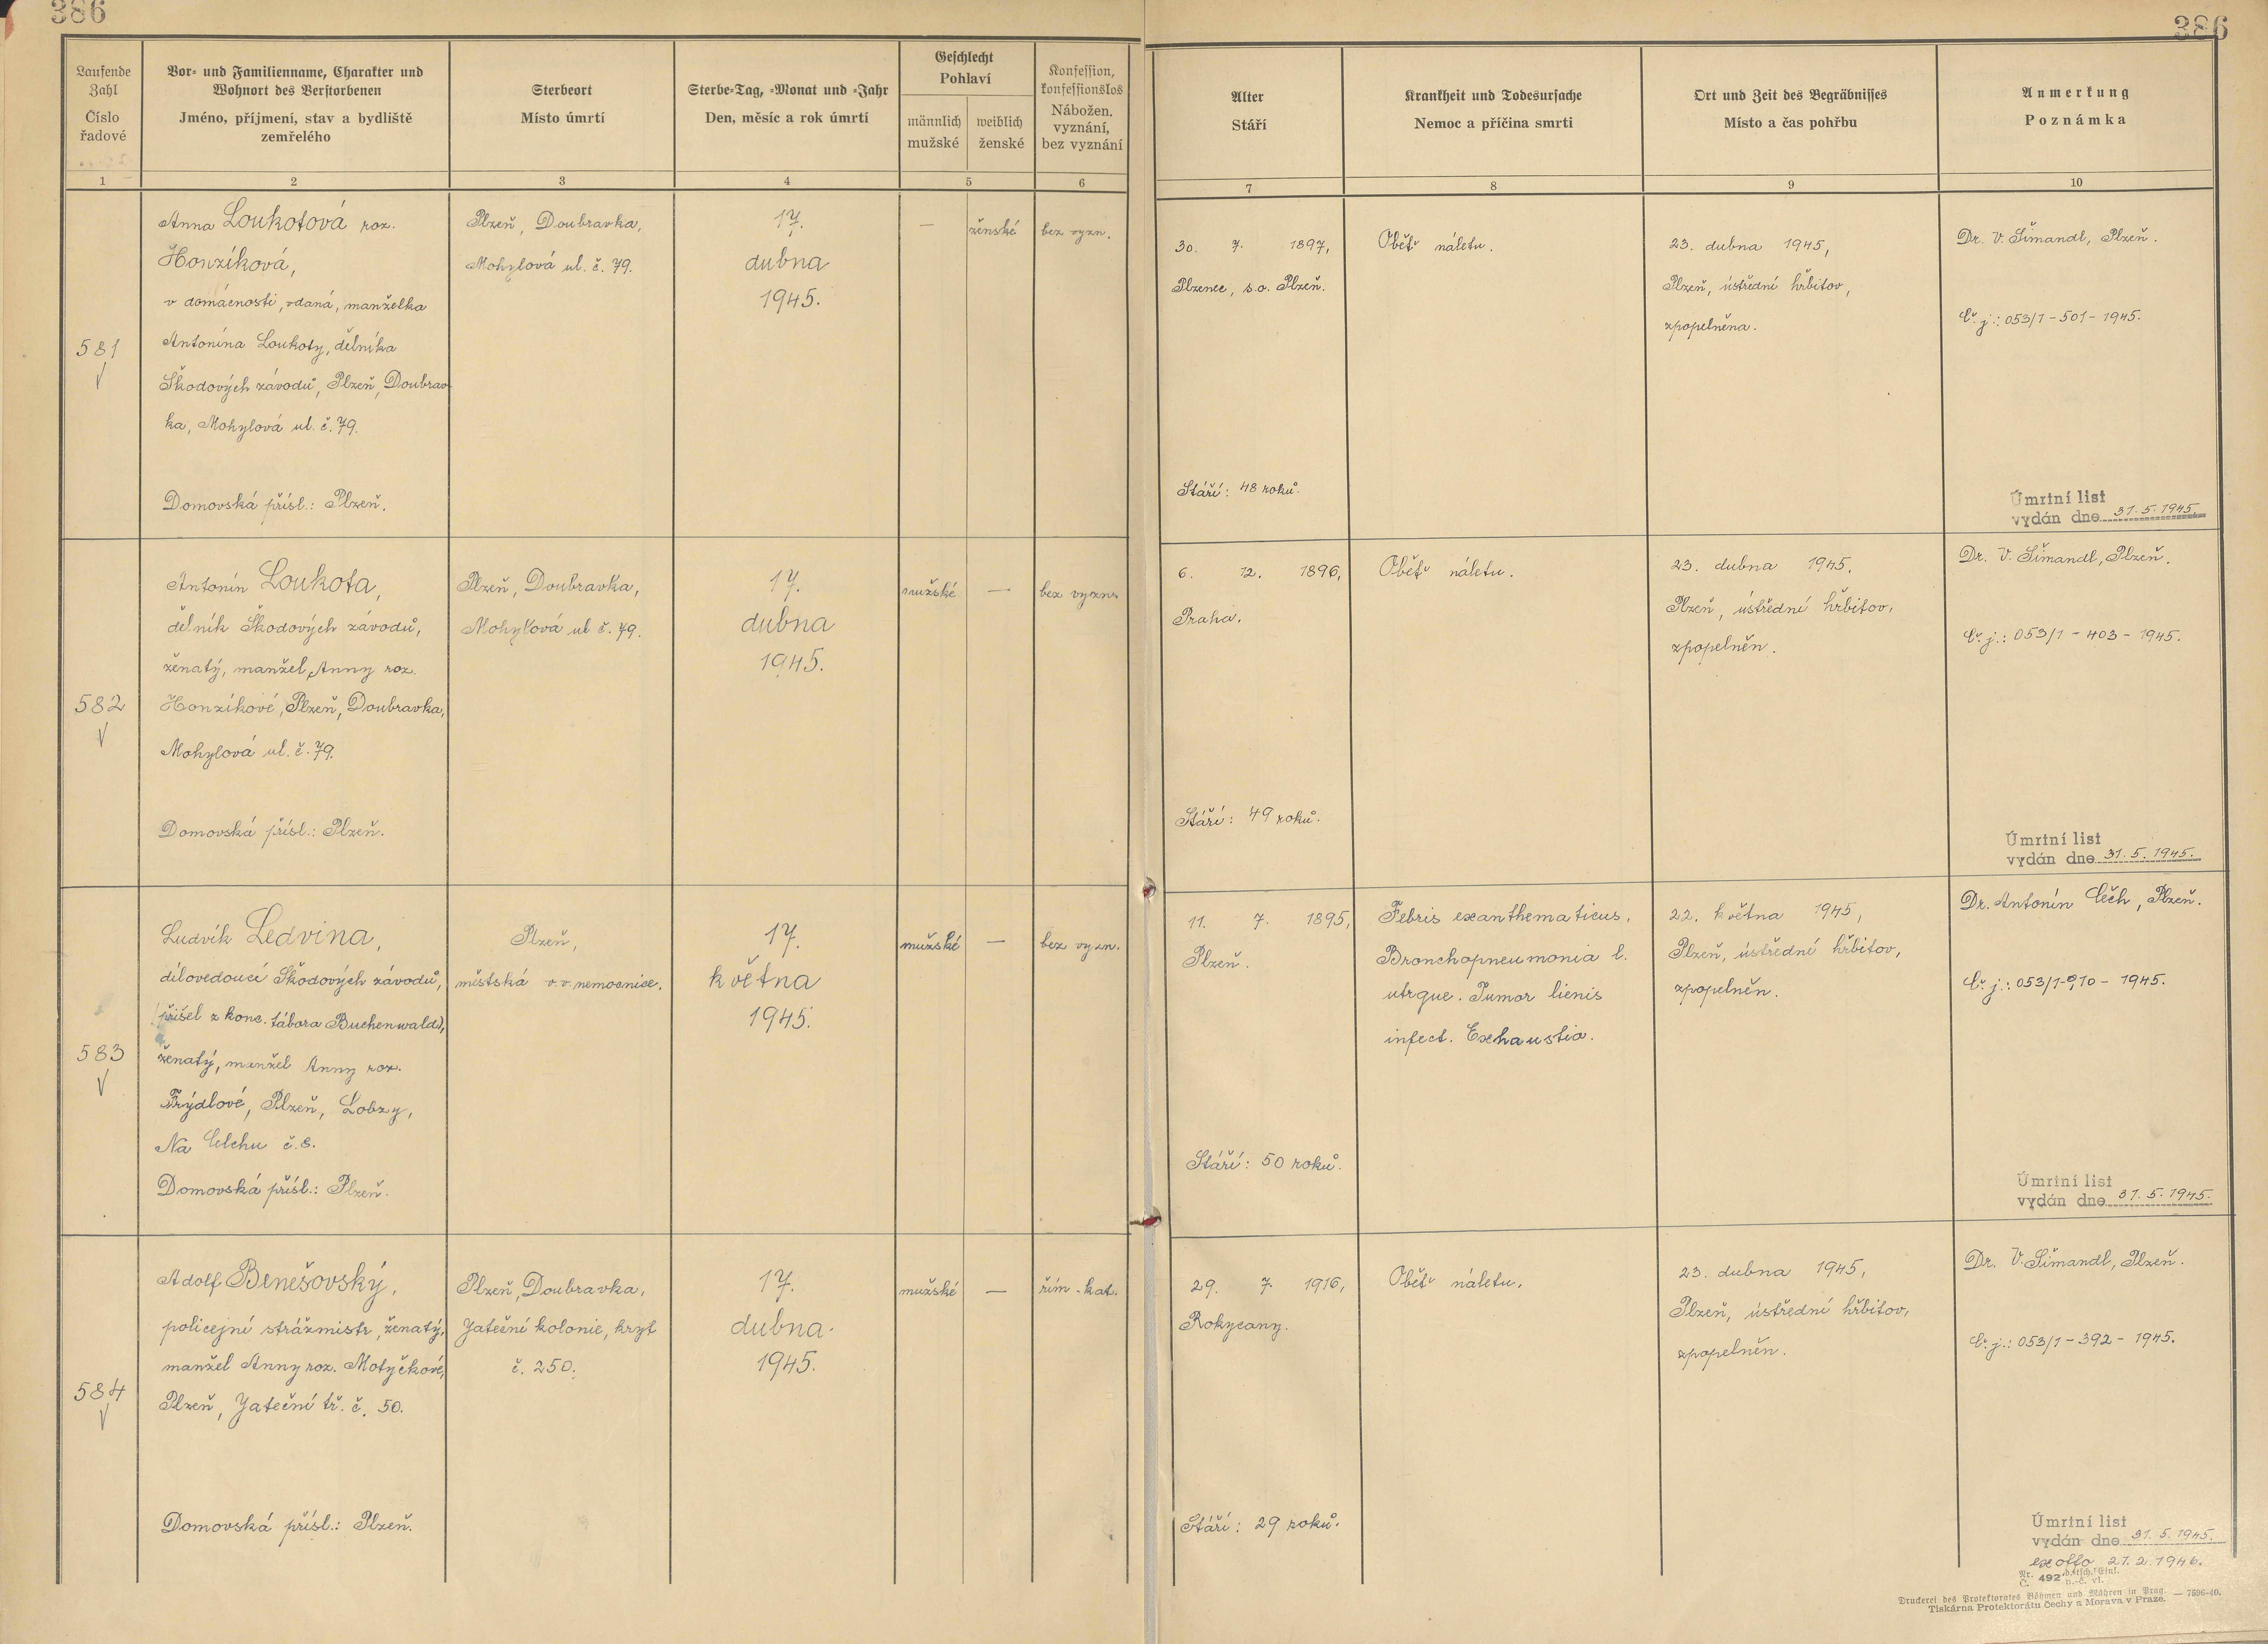 386
386
Laufende Zahl
Číslo řadové
Vor- und Familienname, Charakter und
Wohnort des Verstorbenen
Jméno, příjmení, stav a bydliště
zemřelého
Sterbeort
Místo úmrtí
Sterbe-Tag, -Monat und -Jahr
Den, měsíc a rok úmrtí
Geschlecht
Pohlaví
männlich
mužské
weiblich
ženské
Konfession,
konfessionslos
Nábožen.
vyznání,
bez vyznání
Alter
Stáří
Krankheit und Todesursache
Nemoc a příčina smrti
Ort und Zeit des Begräbnisses
Místo a čas pohřbu
Anmerkung
Poznámka
1
2
3
4
5
6
7
8
9
10
581
Anna Loukotová roz.
Honzíková,
v domácnosti, vdaná, manželka
Antonína Loukoty, dělníka
Škodových závodů, Plzeň, Doubrav-
ka, Mohylová ul. č. 79.
Domovská přísl.: Plzeň.
Plzeň, Doubravka,
Mohylová ul. č. 79.
17.
dubna
1945.
—
ženské
bez vyzn.
30. 7. 1897,
Plzenec, s.o. Plzeň.
Stáří: 48 roků.
Oběť náletu.
23. dubna 1945,
Plzeň, ústřední hřbitov,
zpopelněna.
Dr. V. Šimandl, Plzeň.
Č. j.: 053/1-501-1945.
Úmrtní list
vydán dne 31.5.1945.
582
Antonín Loukota,
dělník Škodových závodů,
ženatý, manžel Anny roz.
Honzíkové, Plzeň, Doubravka,
Mohylová ul. č. 79.
Domovská přísl.: Plzeň.
Plzeň, Doubravka,
Mohylová ul č. 79.
17.
dubna
1945.
mužské
—
bez vyzn.
6. 12. 1896,
Praha.
Stáří: 49 roků.
Oběť náletu.
23. dubna 1945,
Plzeň, ústřední hřbitov,
zpopelněn.
Dr. V. Šimandl, Plzeň.
Č. j.: 053/1-403-1945.
Úmrtní list
vydán dne 31.5.1945.
583
Ludvík Ledvina,
dílovedoucí Škodových závodů,
(přišel z konc. tábora Buchenwald),
ženatý, manžel Anny roz.
Frýdlové, Plzeň, Lobzy,
Na Celchu č. 8.
Domovská přísl.: Plzeň.
Plzeň,
městská v.v. nemocnice.
17.
května
1945.
mužské
—
bez vyzn.
11. 7. 1895,
Plzeň.
Stáří: 50 roků.
Febris exanthematicus.
Bronchopneumonia l.
utrque. Tumor lienis
infect. Exhaustio.
22. května 1945,
Plzeň, ústřední hřbitov,
zpopelněn.
Dr. Antonín Čěch, Plzeň.
Č. j.: 053/1-910-1945.
Úmrtní list
vydán dne 31.5.1945.
584
Adolf Benešovský,
policejní strážmistr, ženatý,
manžel Anny roz. Motyčkové,
Plzeň, Jateční tř. č. 50.
Domovská přísl.: Plzeň.
Plzeň, Doubravka,
Jateční kolonie, kryt
č. 250.
17.
dubna
1945.
mužské
—
řím.-kat.
29. 7. 1916,
Rokycany.
Stáří: 29 roků.
Oběť náletu.
23. dubna 1945,
Plzeň, ústřední hřbitov,
zpopelněn.
Dr. V. Šimandl, Plzeň.
Č. j.: 053/1-392-1945.
Úmrtní list
vydán dne 31.5.1945.
ex offo 21.2.1946.
Nr. Č. 492
Druckerei des Protektorates Böhmen und Mähren in Prag. — 7596-40.
Tiskárna Protektorátu Čechy a Morava v Praze.